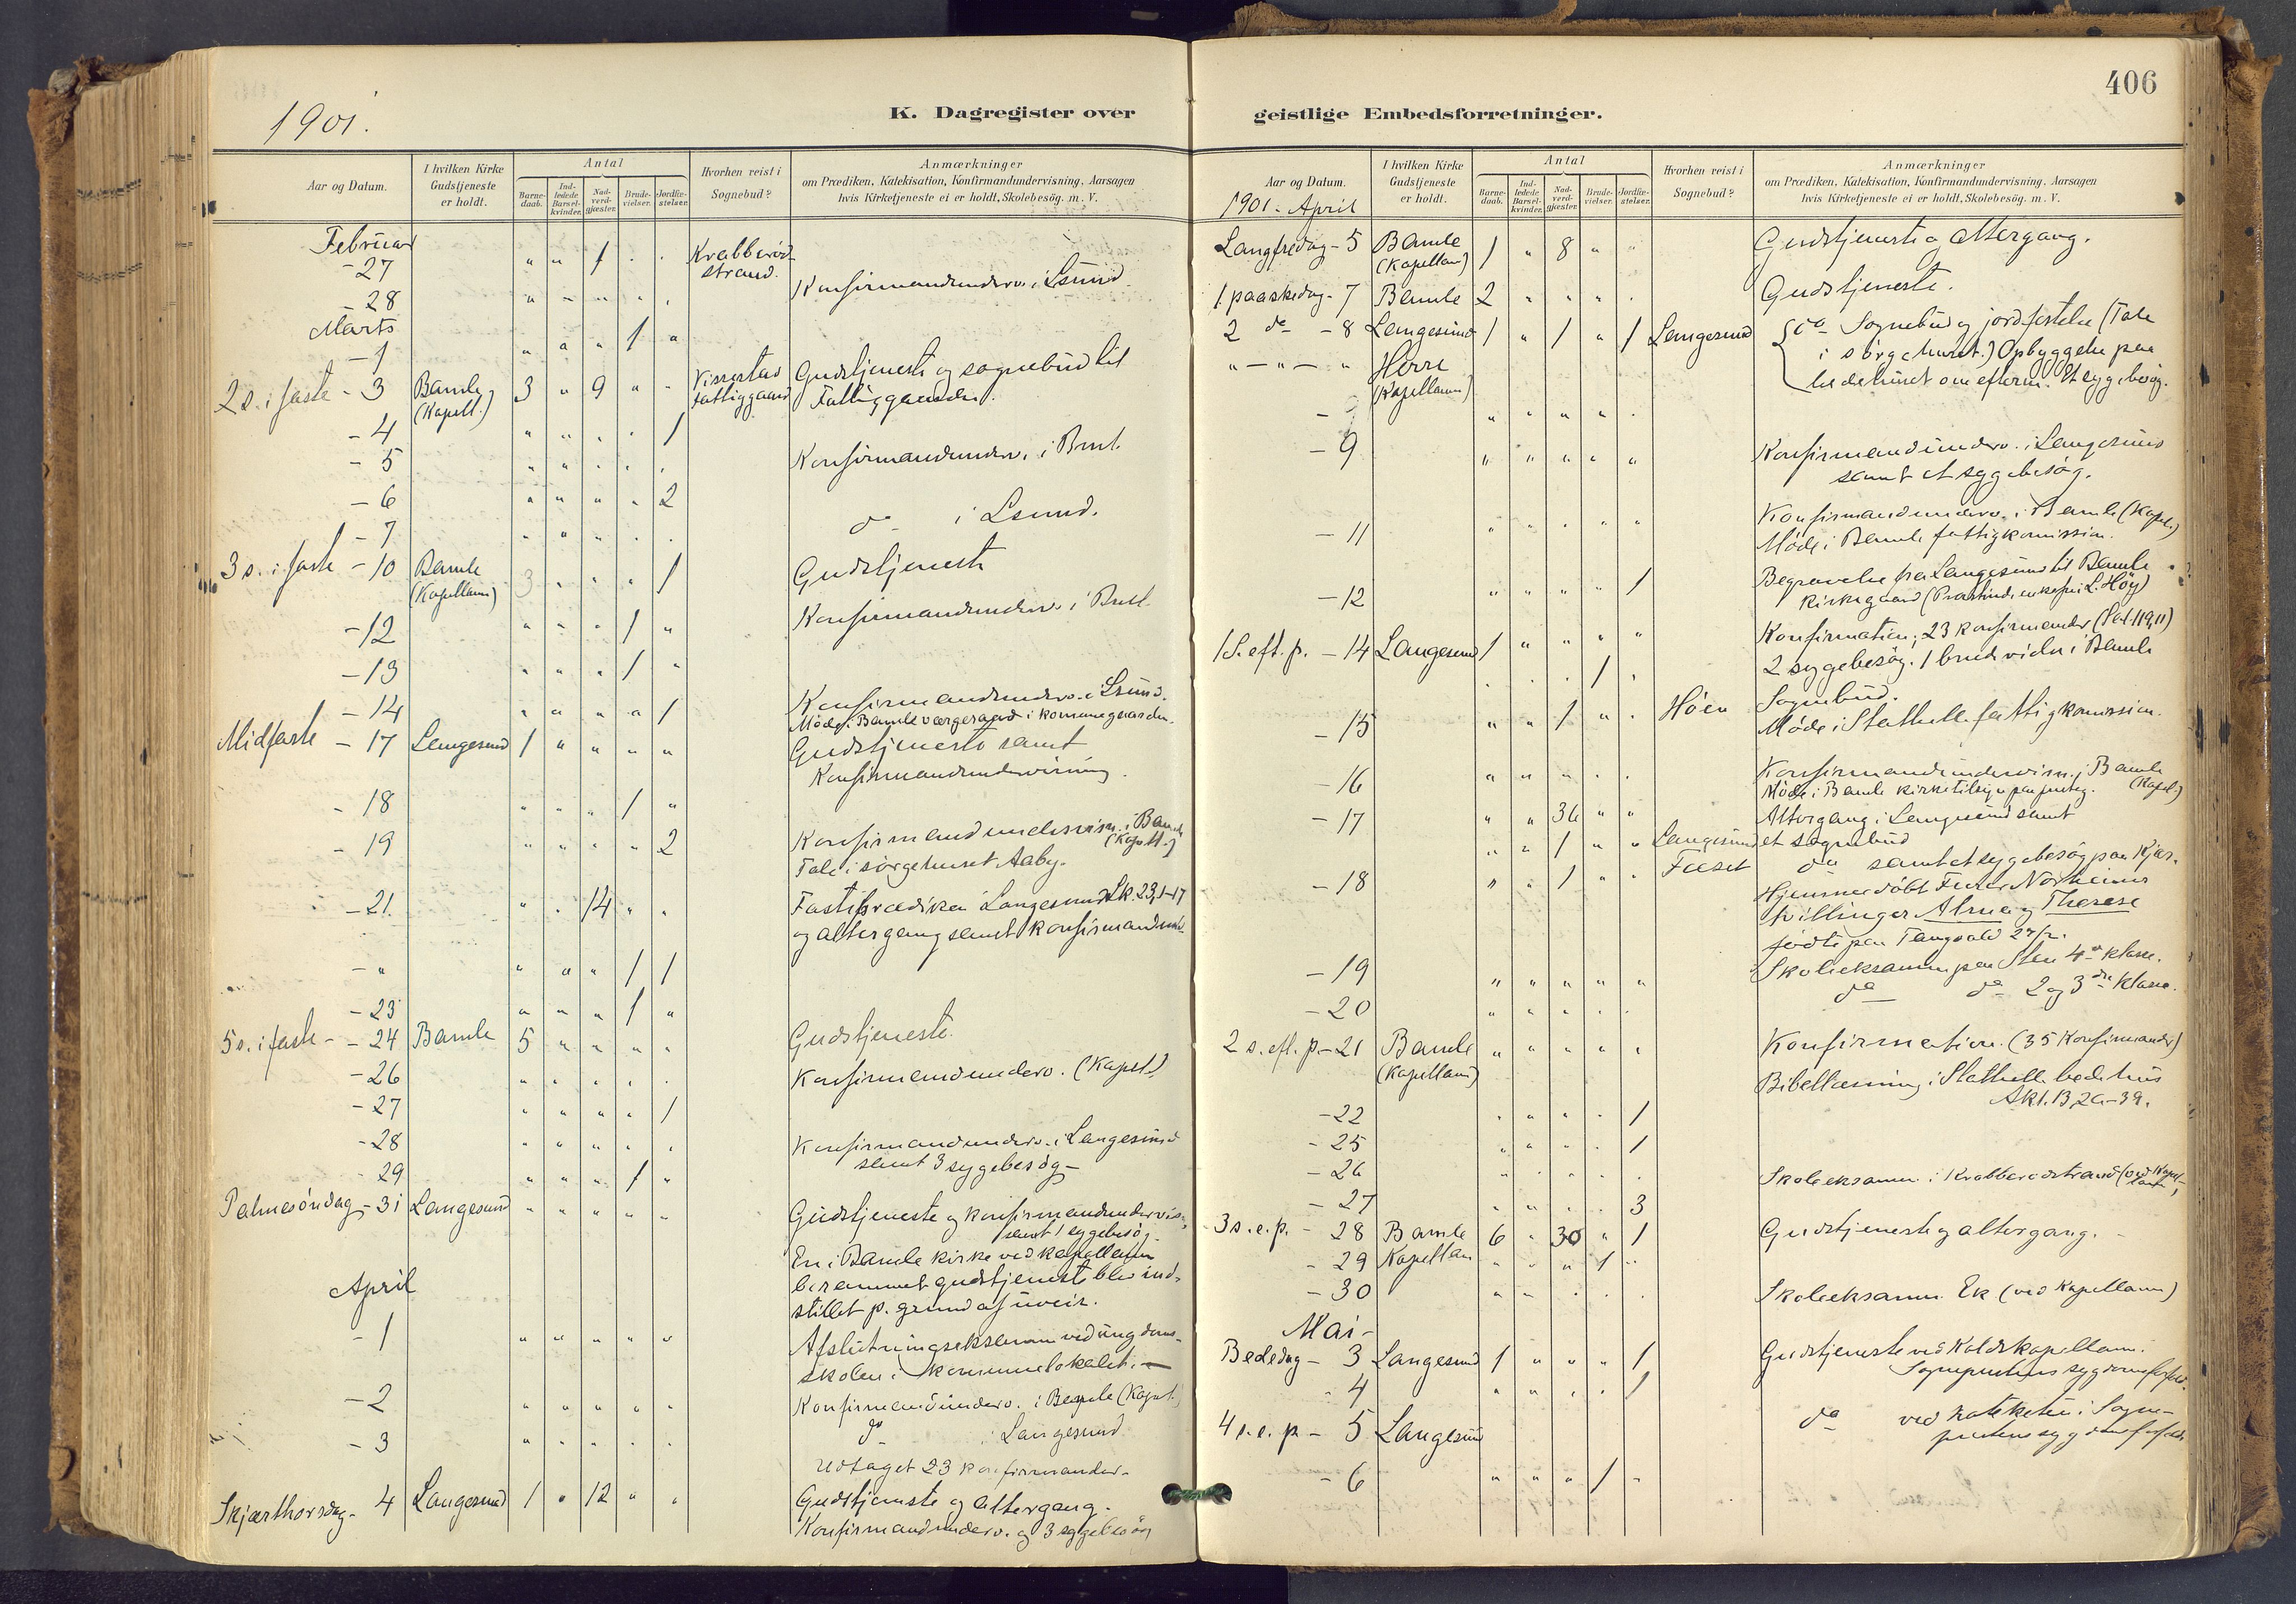 406
1901.
K. Dagregister over
geistlige Embedsforretninger.
Aar og Datum.
I hvilken Kirke
Gudstjeneste
er holdt.
Antal
Barne-
daab.
Ind-
ledede
Barsel-
kvinder.
Nad-
verd-
gjæster.
Brude-
vielser.
Jordfæ-
stelser.
Hvorhen reist i
Sognebud?
Anmærkninger
om Prædiken, Katekisation, Konfirmandundervisning, Aarsagen
hvis Kirketjeneste ei er holdt, Skolebesög. m. V.
Februar
- 27 " " 1 . . Krabberöd-
strand.
- 28 " " " " . Konfirmandunderv. i Lsund.
Marts
- 1 " " " 1 "
2 s. i faste - 3 Bamle 3 " 9 " " Gudstjeneste og sognebud til
(Kapell.) Fattiggaard Fattiggaarden.
- 4 " " . . 1
- 5 " " " . . Konfirmandunderv. i Brvl.
- 6 " " " " 2
- 7 " " " . . do i Lsund.
3 s. i faste - 10 Bamle 3 . . . 1 Gudstjeneste
(Kapellanen)
- 12 " " " 1 " Konfirmandunderv. i
- 13 " " " 1 "
- 14 " " " " 1 Konfirmandunderv. i Lsund.
Möde i Bamle værgeraad i kommunegaarden.
Midfaste - 17 Langesund 1 " " " " Gudstjeneste samt
Konfirmandundervisning.
- 18 " " . 1 "
- 19 " " " " 2 Konfirmandundervisn. i Bamle
(Kapell.)
Tale i sörgehuset Aaby.
- 21 " . 14 " . Fasteprædiken i Langesund Lk. 23, 1-17
og altergang samt konfirmandund.
- " " " " 1 1
- 23 " " " 1 "
5 s. i faste - - 24 Bamle 5 " " " " Gudstjeneste.
- 26 " " . . . Konfirmandunderv. (Kapel.)
- 27 " " " " 1
- 28 " " " " . Konfirmandunderv. i Langesund
samt 3 sygebesög -
- 29 " " " 1 "
Palmesöndag - 31 Langesund " " " " " Gudstjeneste og konfirmandundervis.,
samt 1 sygebesög.
En i Bamle kirke ved kapellanen
berammet gudstjeneste blev ind-
stillet p. grund af uveir.
April
- 1 " " " " " Afslutningseksamen ved ungdoms-
skolen i kommunelokalet. -
- 2 " " " " " Konfirmandunderv. i Bamle (Kapel.)
- 3 " " " . . do i Langesund
Udtaget 23 konfirmander.
Skjærthorsdag - 4 Langesund 1 " 12 " " Gudstjeneste og altergang.
Konfirmandunderv. og 3 sygebesög
Aar og Datum.
I hvilken Kirke
Gudstjeneste
er holdt.
Antal
Barne-
daab.
Ind-
ledede
Barsel-
kvinder.
Nad-
verd-
gjæster.
Brude-
vielser.
Jordfæ-
stelser.
Hvorhen reist i
Sognebud?
Anmærkninger
om Prædiken, Katekisation, Konfirmandundervisning. Aarsagen
hvis Kirketjeneste ei er holdt, Skolebesög. m. V.
1901 - April
Langfredag - 5 Bamle 1 " 8 " " Gudstjeneste og altergang.
(Kapellan)
1. paaskedag - 7 Bamle 2 " " " . Gudstjeneste.
2 do - 8 Langesund 1 " 1 " 1 Langesund do Sognebud og jordfestelse (Tale
i sörgehuset.) Opbyggelse paa
" - " - " Herre bedehuset om efterm. 1 sygebesög.
(Kapellanen)
- 9 " " " " " Konfirmandunderv. i Langesund
samt et sygebesög.
- 11 " " " " " Konfirmandunderv. i Bamle (Kapel.)
Möde i Bamle fattigkomission.
- 12 " " " " 1 Begravelse fra Langesund til Bamle
kirkegaard (Præstinde, enkefru L. Höy)
1 S. eft. p. - 14 Langesund 1 " " " " Konfirmation; 23 konfirmander (Sal. 119,11)
. . . 1 . 2 sygebesög. 1 brudevielse i Bamle
- 15 " " 1 " . Höen Sognebud.
Möde i Stathelle fattigkomission.
- 16 " " " . . Konfirmandundervisn. i Bamle
(Kapel.)
Möde i Bamle kirketilsyn
- 17 " " 36 " " Altergang i Langesund samt
" " 1 " " Langesund et sognebud
- 18 " " 1 " . do samt et sygebesög paa Kjær.
Hjemmedöbt Norheims
tvillinger Alma og Therese
födte paa Tangvald
- 19 " " " " " Skoleeksamen paa Sten 4de klasse.
- 20 " " " " . do do 2 og 3die klasse.
2 s. eft. p. - 21 Bamle " " " " " Konfirmation. (35 Konfirmander)
(Kapellanen) Bibellæsning i Stathelle bedehus
Akt. 13, 26-39.
- 22 . " " . 1
- 25 " " " . 1
- 26 " " . . . Skoleeksamen i Krabberödstrand
- 27 " . " . 3
3 s. e. p. - 28 Bamle 6 " 30 " 1 Gudstjeneste og altergang.
- 29 Kapellan " " " 1 "
- 30 " " . . . Skoleeksamen Ek (ved Kapellanen)
Mai -
Bededag - 3 Langesund 1 " " " 1 Gudstjeneste ved Kaldskapellanen.
Sogneprestens sygdomsforfald.
- 4 " " " . 1
4 s. e. p. - 5 Langesund do ved kateketen i Sogne-
prestens sygdomsforfald.
- 6 " " " 1 "